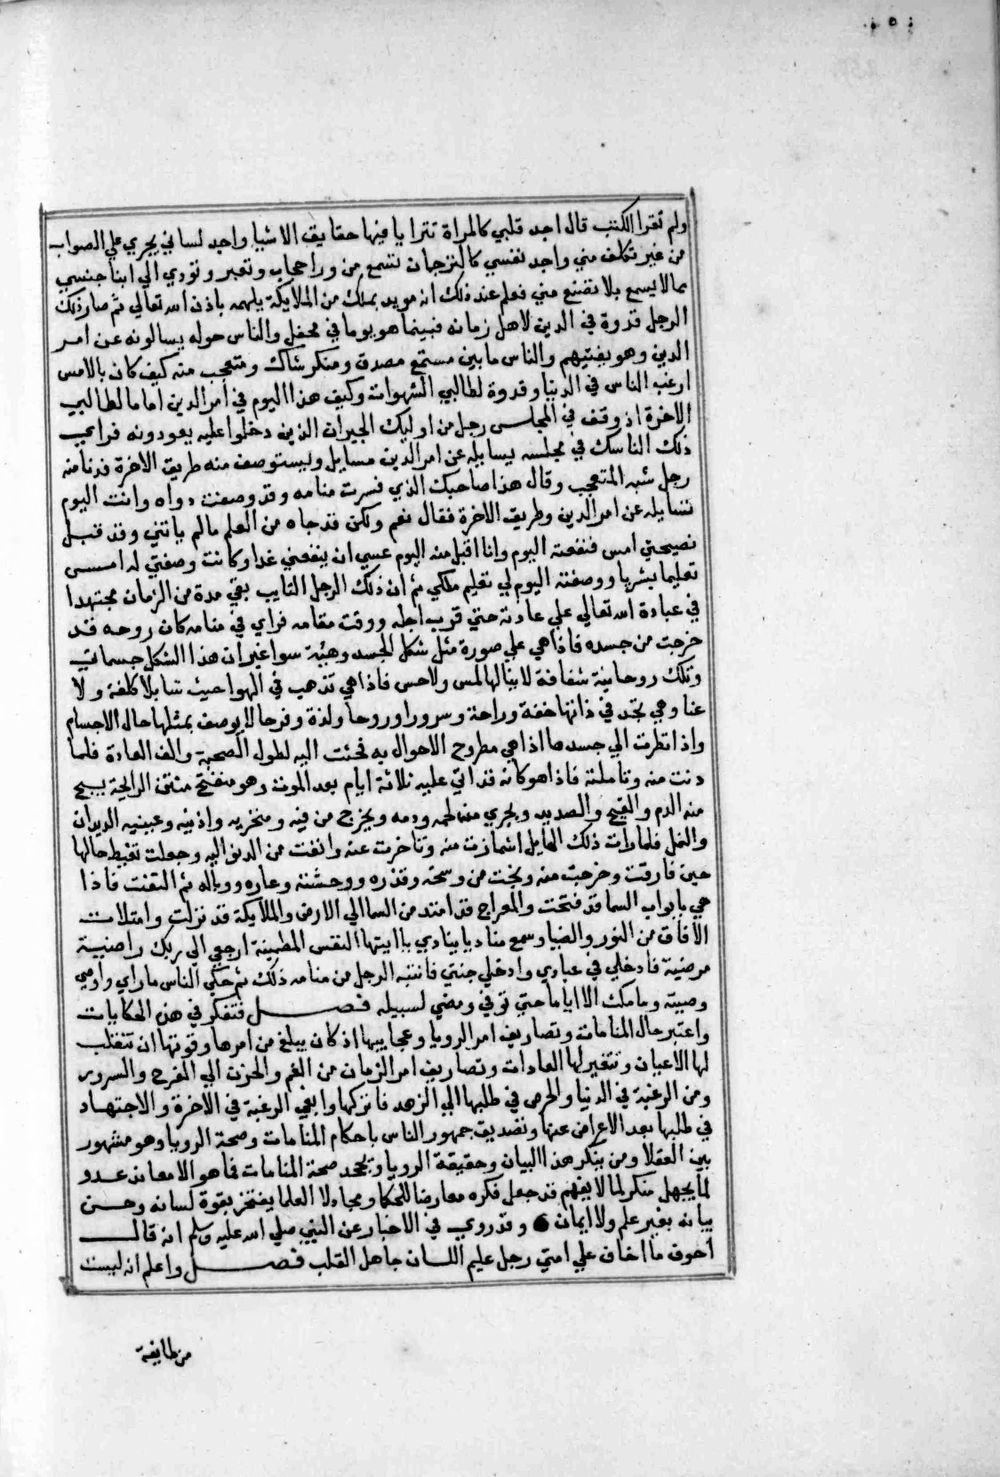 ٥٠
ولم تقرا الكتب قال اجد قلبي كالمراة تترا يا فيها حقايق الاشيا واجد لساني يجري علي الصواب
من غير تكلف مني واجد نفسي كالترجمان تسمع من ورا حجاب وتعبر وتودي الي ابنا جنسي
بما لا يسمع بلا تصنع مني فعلم عند ذلك انه مويد بملك من الملايكة يلهمه باذن الله تعالي ثم صار ذلك
الرجل قدوة في الدين لاهل زمانه فبينما هو يوما في محفل والناس حوله يسالونه عن امر
الدين وهو يفتيهم والناس ما بين مستمع مصدق ومنكر شاك ومتعجب منه كيف كان بالامس
ارغب الناس في الدنيا وقدوة لطالبي الشهوات وكيف هذا اليوم في امر الدين اماما لطالبي
الاخرة اذ وقف في المجلس رجل من اوليك الجيران الذين دخلوا عليه يعودونه فراي
ذلك الناسك في مجلسه يسايله عن امر الدين مسايل ويستوصف منه طريق الاخرة فدنا منه
رجل شبه المتعجب وقال هذا صاحبك الذي فسرت منامه وقد وصفت دواه وانت اليوم
تسايله عن امر الدين وطريق الاخرة فقال نعم ولكن قد جاه من العلم مالم ياتني وقد قبل
نصيحتي امس فنفعته اليوم وانا اقبل منه اليوم عسي ان ينفعني غدا وكانت وصفتي له امس
تعليما بشريا ووصفته اليوم لي تعليم ملكي ثم ان ذلك الرجل التايب بقي مدة من الزمان مجتهدا
في عبادة الله تعالي علي عادته حتي قرب اجله ووقت مقامه فراي في منامه كان روحه قد
خرجت من جسده فاذا هي علي صورة مثل شكل الجسد وهيته سوا غير ان هذا الشكل جسماني
وتلك روحانية شفافة لا ينالها لمس ولا حس فاذا هي تذهب في الهوا حيث شا بلا كلفة ولا
عنا وهي تجد في ذاتها خفة وراحة وسرورا وروحا ولذة وفرحا لا يوصف بمثلها حال الاجسام
واذا نظرت الي جسدها اذا هي مطروح الاحوال به فحنت اليه لطول الصحبة والف العادة فلما
دنت منه وتاملته فاذا هو كانه قد اتي عليه ثلاثة ايام بعد الموت وهو منتفخ منتن الرايحة يسيح
منه الدم والقيح والصديد ويجري منه لحمه ودمه ويخرج من فيه ومنخريه واذنيه وعينيه الديدان
والنمل فلما رات ذلك الهايل اشمازت منه وتاخرت عنه وانفت من الدنو اليه وجعلت تغبط حالها
حين فارقت وخرجت منه ونجت من وسخه وقذره ووحشته وعاره ووباله ثم التفتت فاذا
هي بابواب السما قد فتحت والمعراج قد امتد من السما الي الارض والملايكة قد نزلت وامتلات
الافاق من النور والضيا وسمع مناديا ينادي يا ايتها النفس المطمينة ارجعي الي ربك راضية
مرضية فادخلي في عبادي وادخلي جنتي فانتبه الرجل من منامه ذلك ثم حكي الناس ما راي واوصي
وصيته وما مكث الا اياما حتي توفي ومضي لسبيله فصل فتفكر في هذه الحكايات
واعتبر حال المنامات وتصاريف امر الرويا وعجايبها اذ كان يبلغ من امرها وقوتها ان تنقلب
لها الاعيان وتتغير لها العادات وتصاريف امر الزمان من الغم والحزن الي الفرح والسرور
ومن الرغبة في الدنيا والحرص في طلبها الي الزهد فاتركها وابغي الرغبة في الاخرة والاجتهاد
في طلبها بعد الاعراض عنها وتصديق جمهور الناس باحكام المنامات وصحة الرويا وهو مشهور
بين العقلا ومن ينكر هذا البيان وحقيقة الرويا ويجحد صحة المنامات فما هو الا معاند عدو
لما يجهل منكر لما لا يفهم قد جعل فكره معارضا للحكما ومجادلا العلما يفتخر بقوة لسانه وحسن
بيانه بغير علم ولا ايمان وقد روي في الاخبار عن النبي صلي الله عليه وسلم انه قال
اخوف ما اخاف علي امتي رجل عليم اللسان جاهل القلب فصل واعلم انه ليست
من طايفة